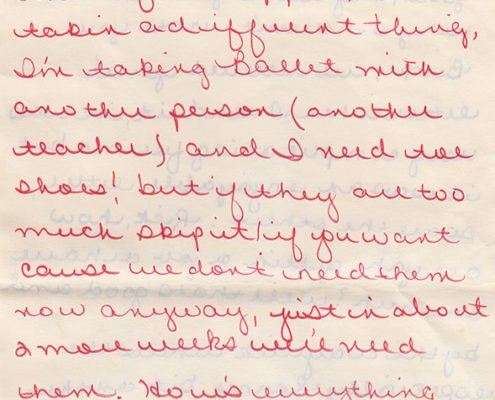 takin a diffrent thing,
I'm taking Ballet with
another person (another
teacher) and I need toe
shoes! but if they are too
much skip it! if you want
cause we don't need them
now anyway, just in about
2 more weeks we'll need
them. How's everything